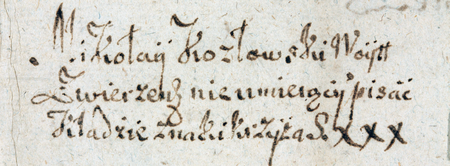 Mikołaij Kozłowski Woijtt
Zwierzenz nie umieiący pisać
Kładzie znaki krzyża S. x x x